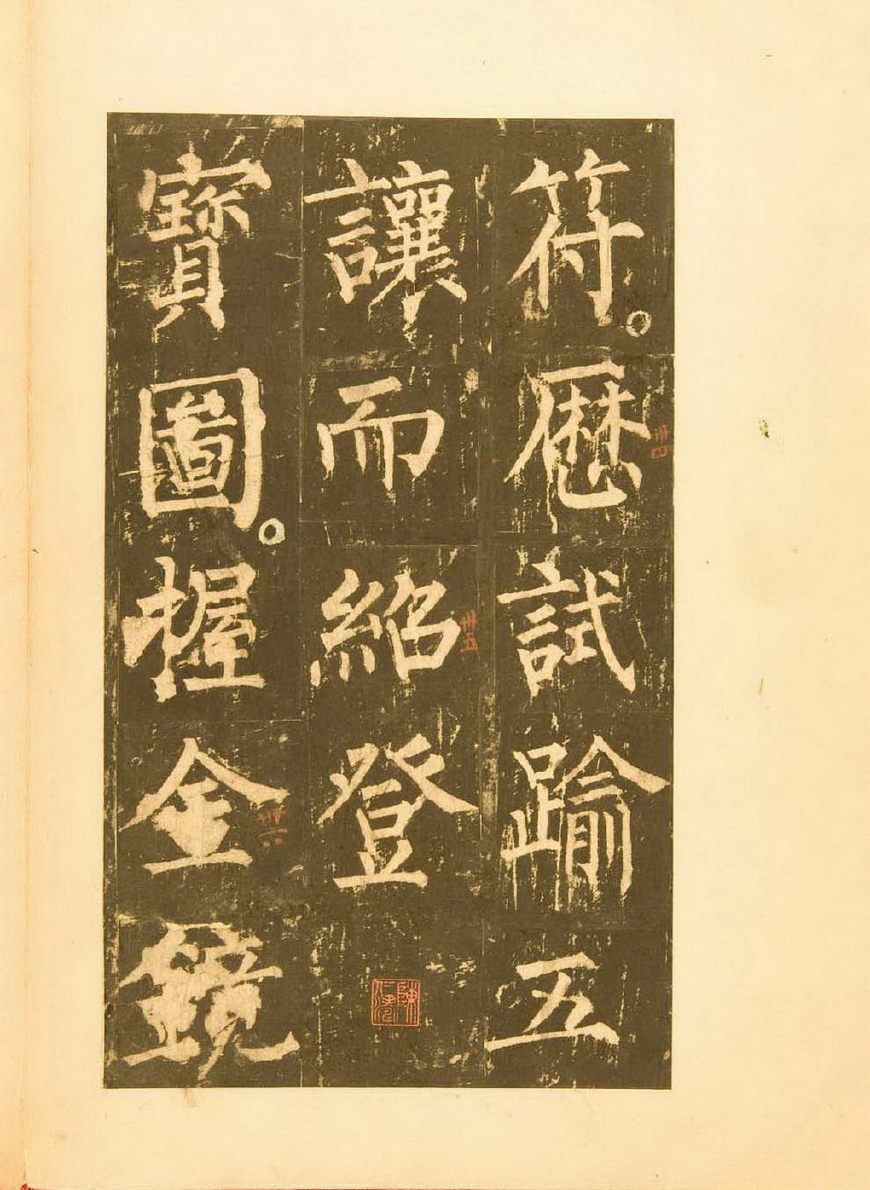 符。歷試踰五
讓而紹登
寶圖。握金鏡
卅四
卅五
卅六